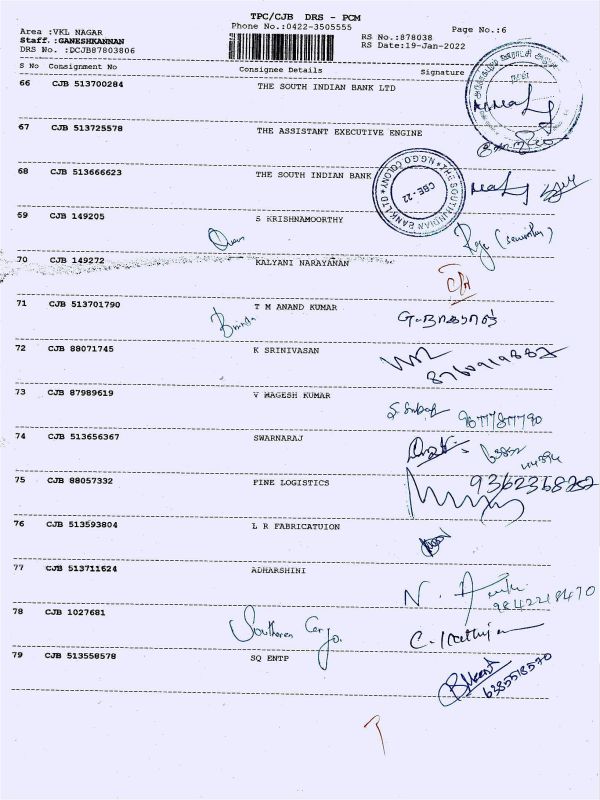 TPC/CJB DRS - PCM
Phone No.:0422-3505555
Area :VKL NAGAR
Staff.:GANESHKANNAN
DRS No. :DCJB87803806
RS No.:878038
RS Date:19-Jan-2022
Page No.:6
S No Consignment No Consignee Details Signature
66 CJB 513700284 THE SOUTH INDIAN BANK LTD
67 CJB 513725578 THE ASSISTANT EXECUTIVE ENGINE
68 CJB 513666623 THE SOUTH INDIAN BANK
THE SOUTH INDIAN BANK LTD N.G.G.O COLONY
CBE-22
69 CJB 149205 S KRISHNAMOORTHY
70 CJB 149272 KALYANI NARAYANAN
71 CJB 513701790 T M ANAND KUMAR
72 CJB 88071745 K SRINIVASAN
73 CJB 87989619 V MAGESH KUMAR
9677787790
74 CJB 513656367 SWARNARAJ
75 CJB 88057332 FINE LOGISTICS
76 CJB 513593804 L R FABRICATUION
77 CJB 513711624 ADHARSHINI
9842218470
78 CJB 1027681 Southern Cargo.
79 CJB 513558578 SQ ENTP
6385518570